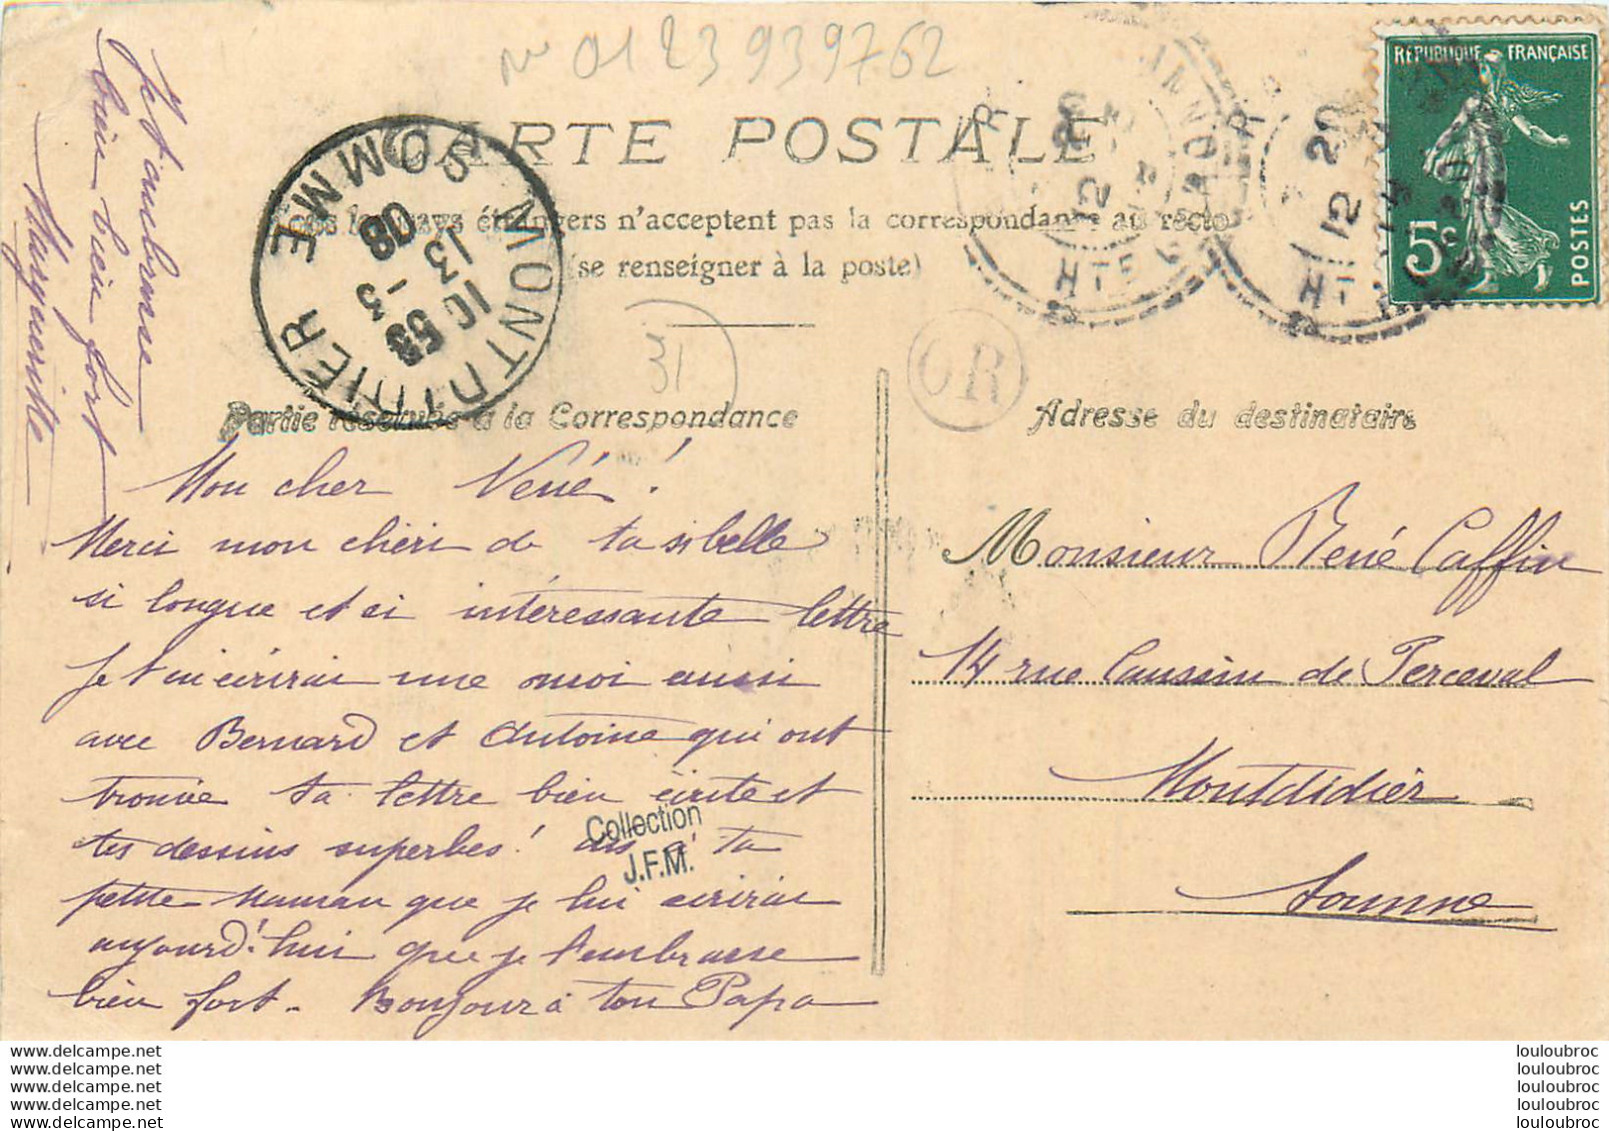 no 0123939762
CARTE POSTALE
Tous les pays étrangers n'acceptent pas la correspondance au recto
(se renseigner à la poste)
MONTDIDIER
SOMME
10 55
13 - 3
08
31
OR
12 20
HTE GARONNE
12 20
RÉPUBLIQUE FRANÇAISE
5c
POSTES
Partie réservée à la Correspondance
Mon cher René !
Merci mon chéri de ta si belle
si longue et si intéressante lettre
Je t'en écrirai une moi aussi
avec Bernard et Antoine qui ont
trouvé ta lettre bien écrite et
tes dessins superbes ! dis à ta
petite Maman que je lui écrirai
aujourd'hui que je t'embrasse
bien fort. Bonjour à ton Papa
Je t'embrasse
bien bien fort
Marguerite
Collection
J.F.M.
Adresse du destinataire
Monsieur René Caffin
14 rue Caussin de Perceval
Montdidier
Somme
www.delcampe.net
www.delcampe.net
www.delcampe.net
www.delcampe.net
www.delcampe.net
louloubroc
louloubroc
louloubroc
louloubroc
louloubroc